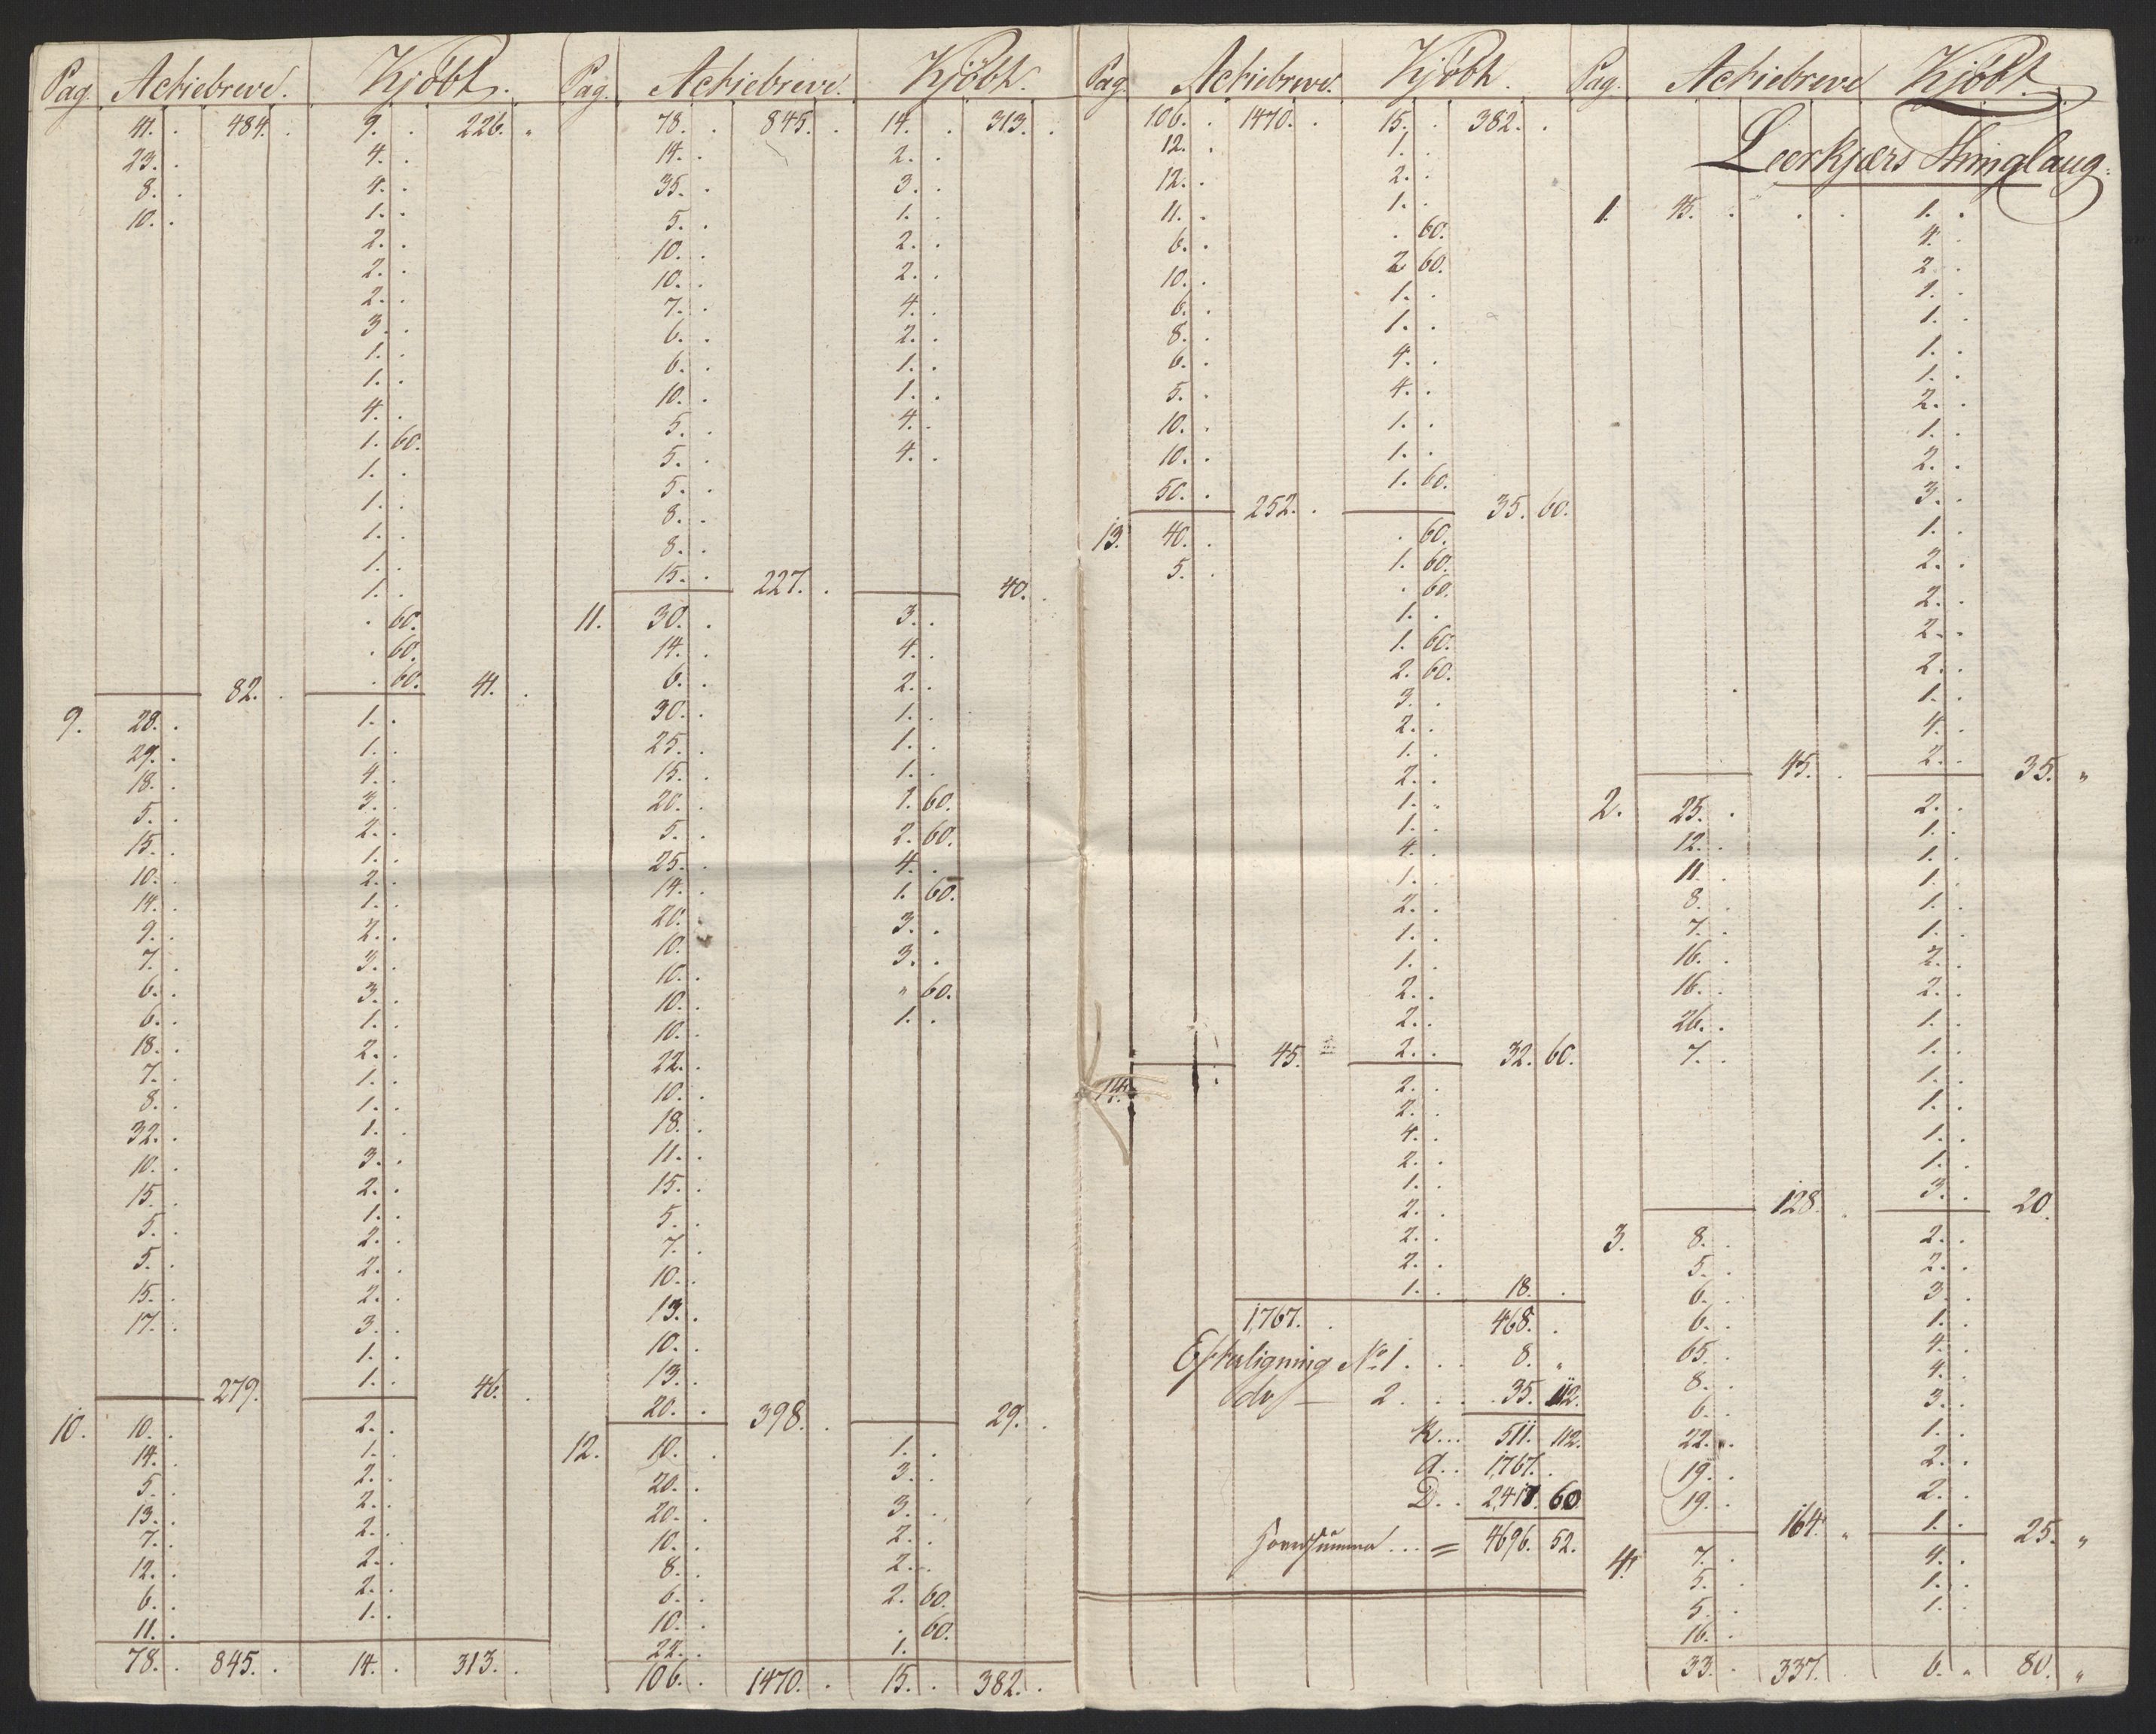 Pag. Actiebreve. Kjöbt.
41. . 484. . 9. . 226. "
23. . 4. .
8. . 4. .
10. . 1. .
2. .
2. .
2. .
3. .
1. .
1. .
4. .
1. 60.
1. .
1. .
1. .
1. .
1. .
. 60.
. 60.
. 60.
82. . 41. .
9. 28. . 1. .
29. . 1. .
18. . 4. .
5. . 3. .
15. . 2. .
10. . 1. .
14. . 2. .
9. . 1. .
7. . 2. .
6. . 3. .
6. . 3. .
18. . 1. .
7. . 2. .
8. . 1. .
32. . 1. .
10. . 1. .
15. . 3. .
5. . 2. .
5. . 1. .
15. . 2. .
17. . 2. .
2. .
3. .
1. .
1. .
279. 46. .
10. 10. . 2. .
14. . 1. .
5. . 2. .
13. . 2. .
7. . 2. .
12. . 2. .
6. . 2. .
11. . 1. .
78. . 845. . 14. . 313. .
Pag. Actiebreve. Kjöbt.
78. . 845. . 14. . 313. .
14. . 2. .
35. . 3. .
5. . 1. .
10. . 2. .
10. . 2. .
7. . 4. .
6. . 2. .
6. . 1. .
10. . 1. .
5. . 4. .
5. . 4. .
5. .
8. .
8. .
15. .
227. . 40. .
11. 30. . 3. .
14. . 4. .
6. . 2. .
30. . 1. .
25. . 1. .
15. . 1. .
20. . 1. 60.
5. . 2. 60.
25. . 4. .
14. . 1. 60.
20. . 3. .
10. . 3. .
10. . " 60.
10. . 1. .
10. .
22. .
10. .
18. .
11. .
15. .
5. .
7. .
10. .
13. .
10. .
13. .
20. .
398. . 29. .
12. 10. . 1. .
20. . 3. .
20. . 3. .
10. . 2. .
8. . 2. .
6. . 2. 60.
10. . . 60.
22. . 1.
106. . 1470. . 15. . 382. .
Pag. Actiebreve. Kjöbt.
106. . 1470. . 15. . 382. .
12. . 1. .
12. . 2. .
11. . 1. .
6. . . 60.
10. . 2 60.
6. . 1. .
8. . 1. .
6. . 4. .
5. . 4. .
10. . 1. .
10. . 1. .
50. . 1. 60.
252. . 35. 60.
13. 40. . . 60.
5. . 1. 60.
. 60.
1. .
1. 60.
2. 60.
3. .
2. .
1. .
2. .
1. .
1. .
4. .
1. .
2. .
1. .
1. .
2. .
2. .
2. .
45. 32. 60.
14. 2. .
2. .
4. .
2. .
1. .
2. .
2. .
2. .
1. . 18. .
1,767. . 468. .
Efterligning No 1. . . 8. "
do — 2 . . . 35. 112.
K... 511. 112.
A.. 1,767. .
D. . 2,417. 60
= 4696. 52.
Pag. Actiebreve Kjöbt.
Leerkjærs Thinglaug.
1. 45. . . . 1. .
4. .
2 .
1. .
1. .
1. .
1. .
2. .
1. .
2. .
3. .
1. .
2. .
2. .
2. .
2. .
1. .
4. .
2. .
45. . 35. "
2. 25. . 2. .
12. . 1. .
11. . 1. .
8. . 1. .
7. . 1. .
16. . 1. .
16. . 2. .
26. . 2. .
7. . 1. .
1. .
1. .
1. .
1. .
1. .
3. .
128. . 20.
3. 8. . 2. .
5. . 2. .
6. . 3. .
6. . 1. .
65. . 4. .
8. . 4. .
6. . 3. .
22. . 1. .
19. . 2. .
19. . 2. .
1. .
164. " 25. "
4. 7. . 4. .
5. . 1. .
5. . 1. .
16. .
33. . 337. . 6. " 80. "